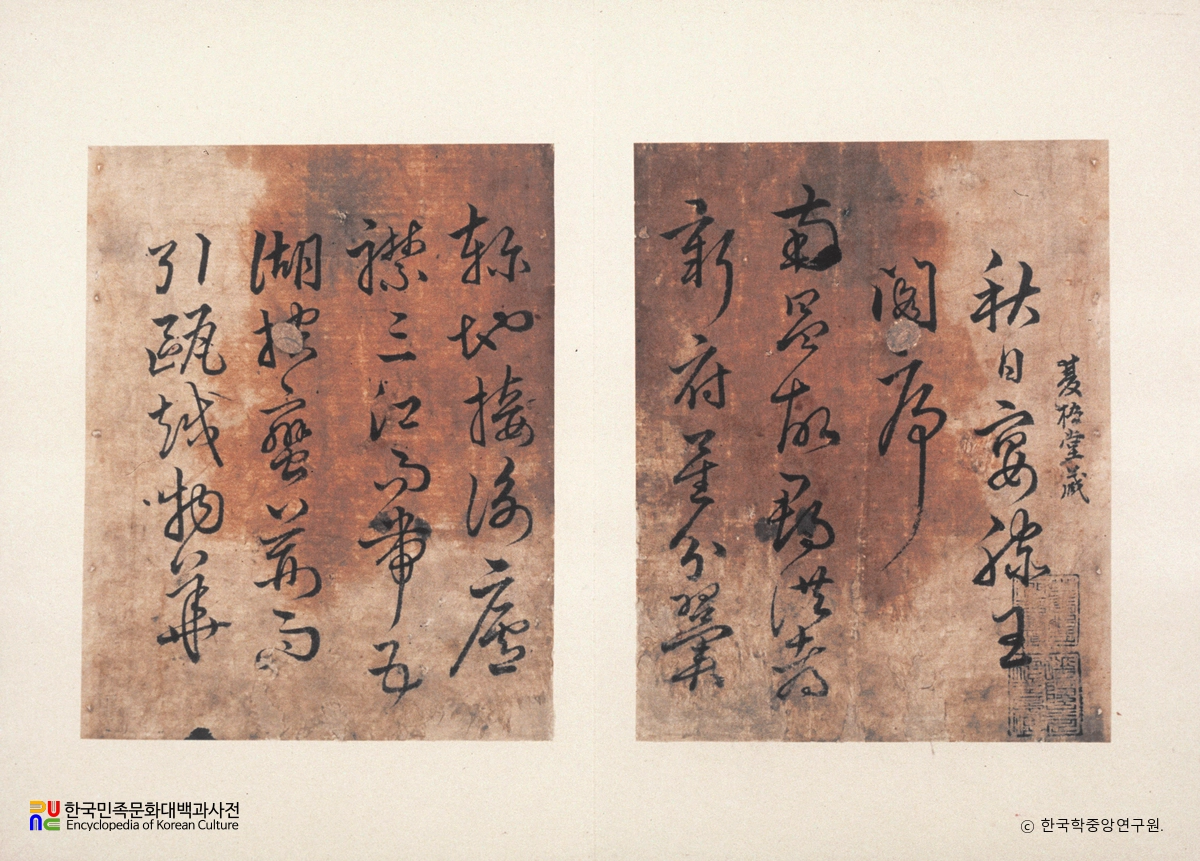 堂藏
秋日宴滕王
閣序
南昌故郡洪都
新府星分翼
軫地接衡廬
襟三江而帶五
湖控蠻荊而
引甌越物華
한국민족문화대백과사전
Encyclopedia of Korean Culture
ⓒ 한국학중앙연구원.